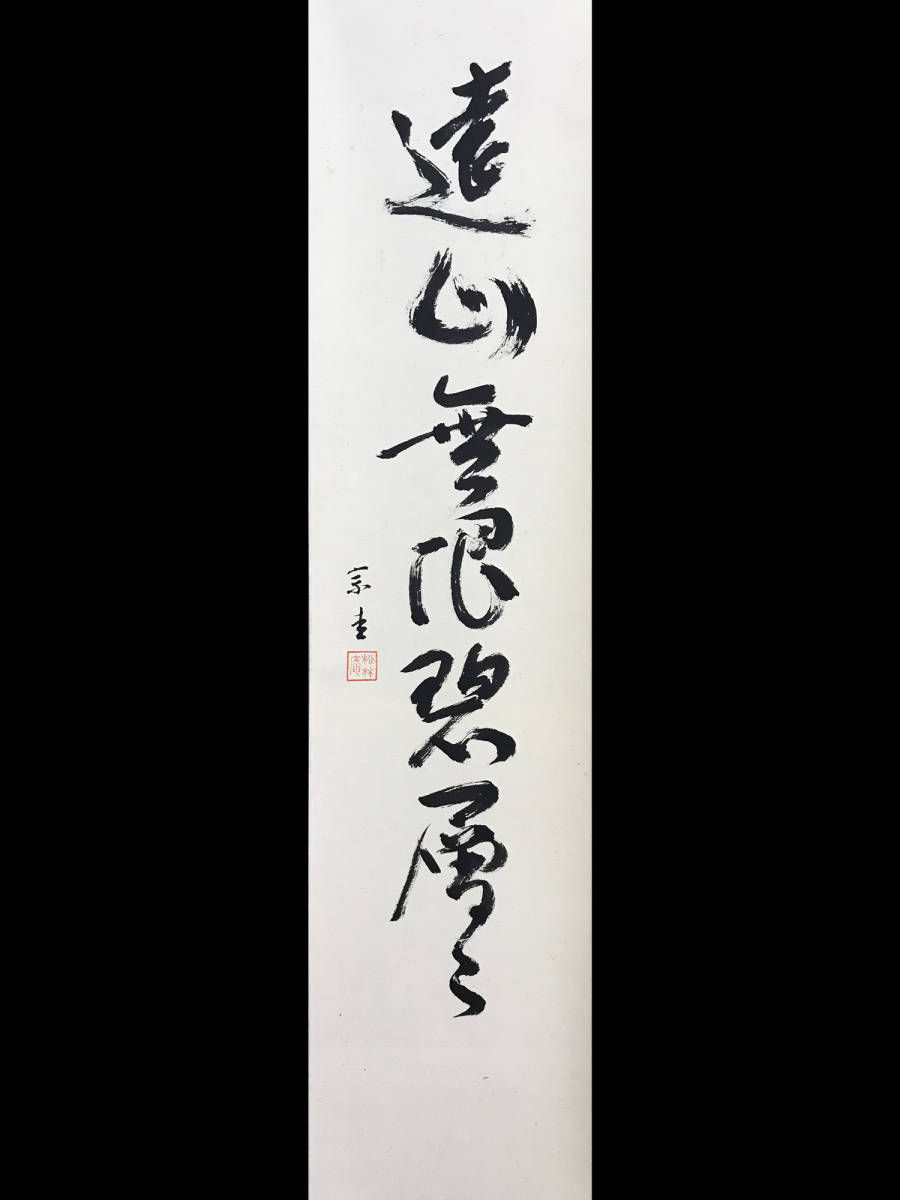 遠山無限碧層々
宗圭
松林